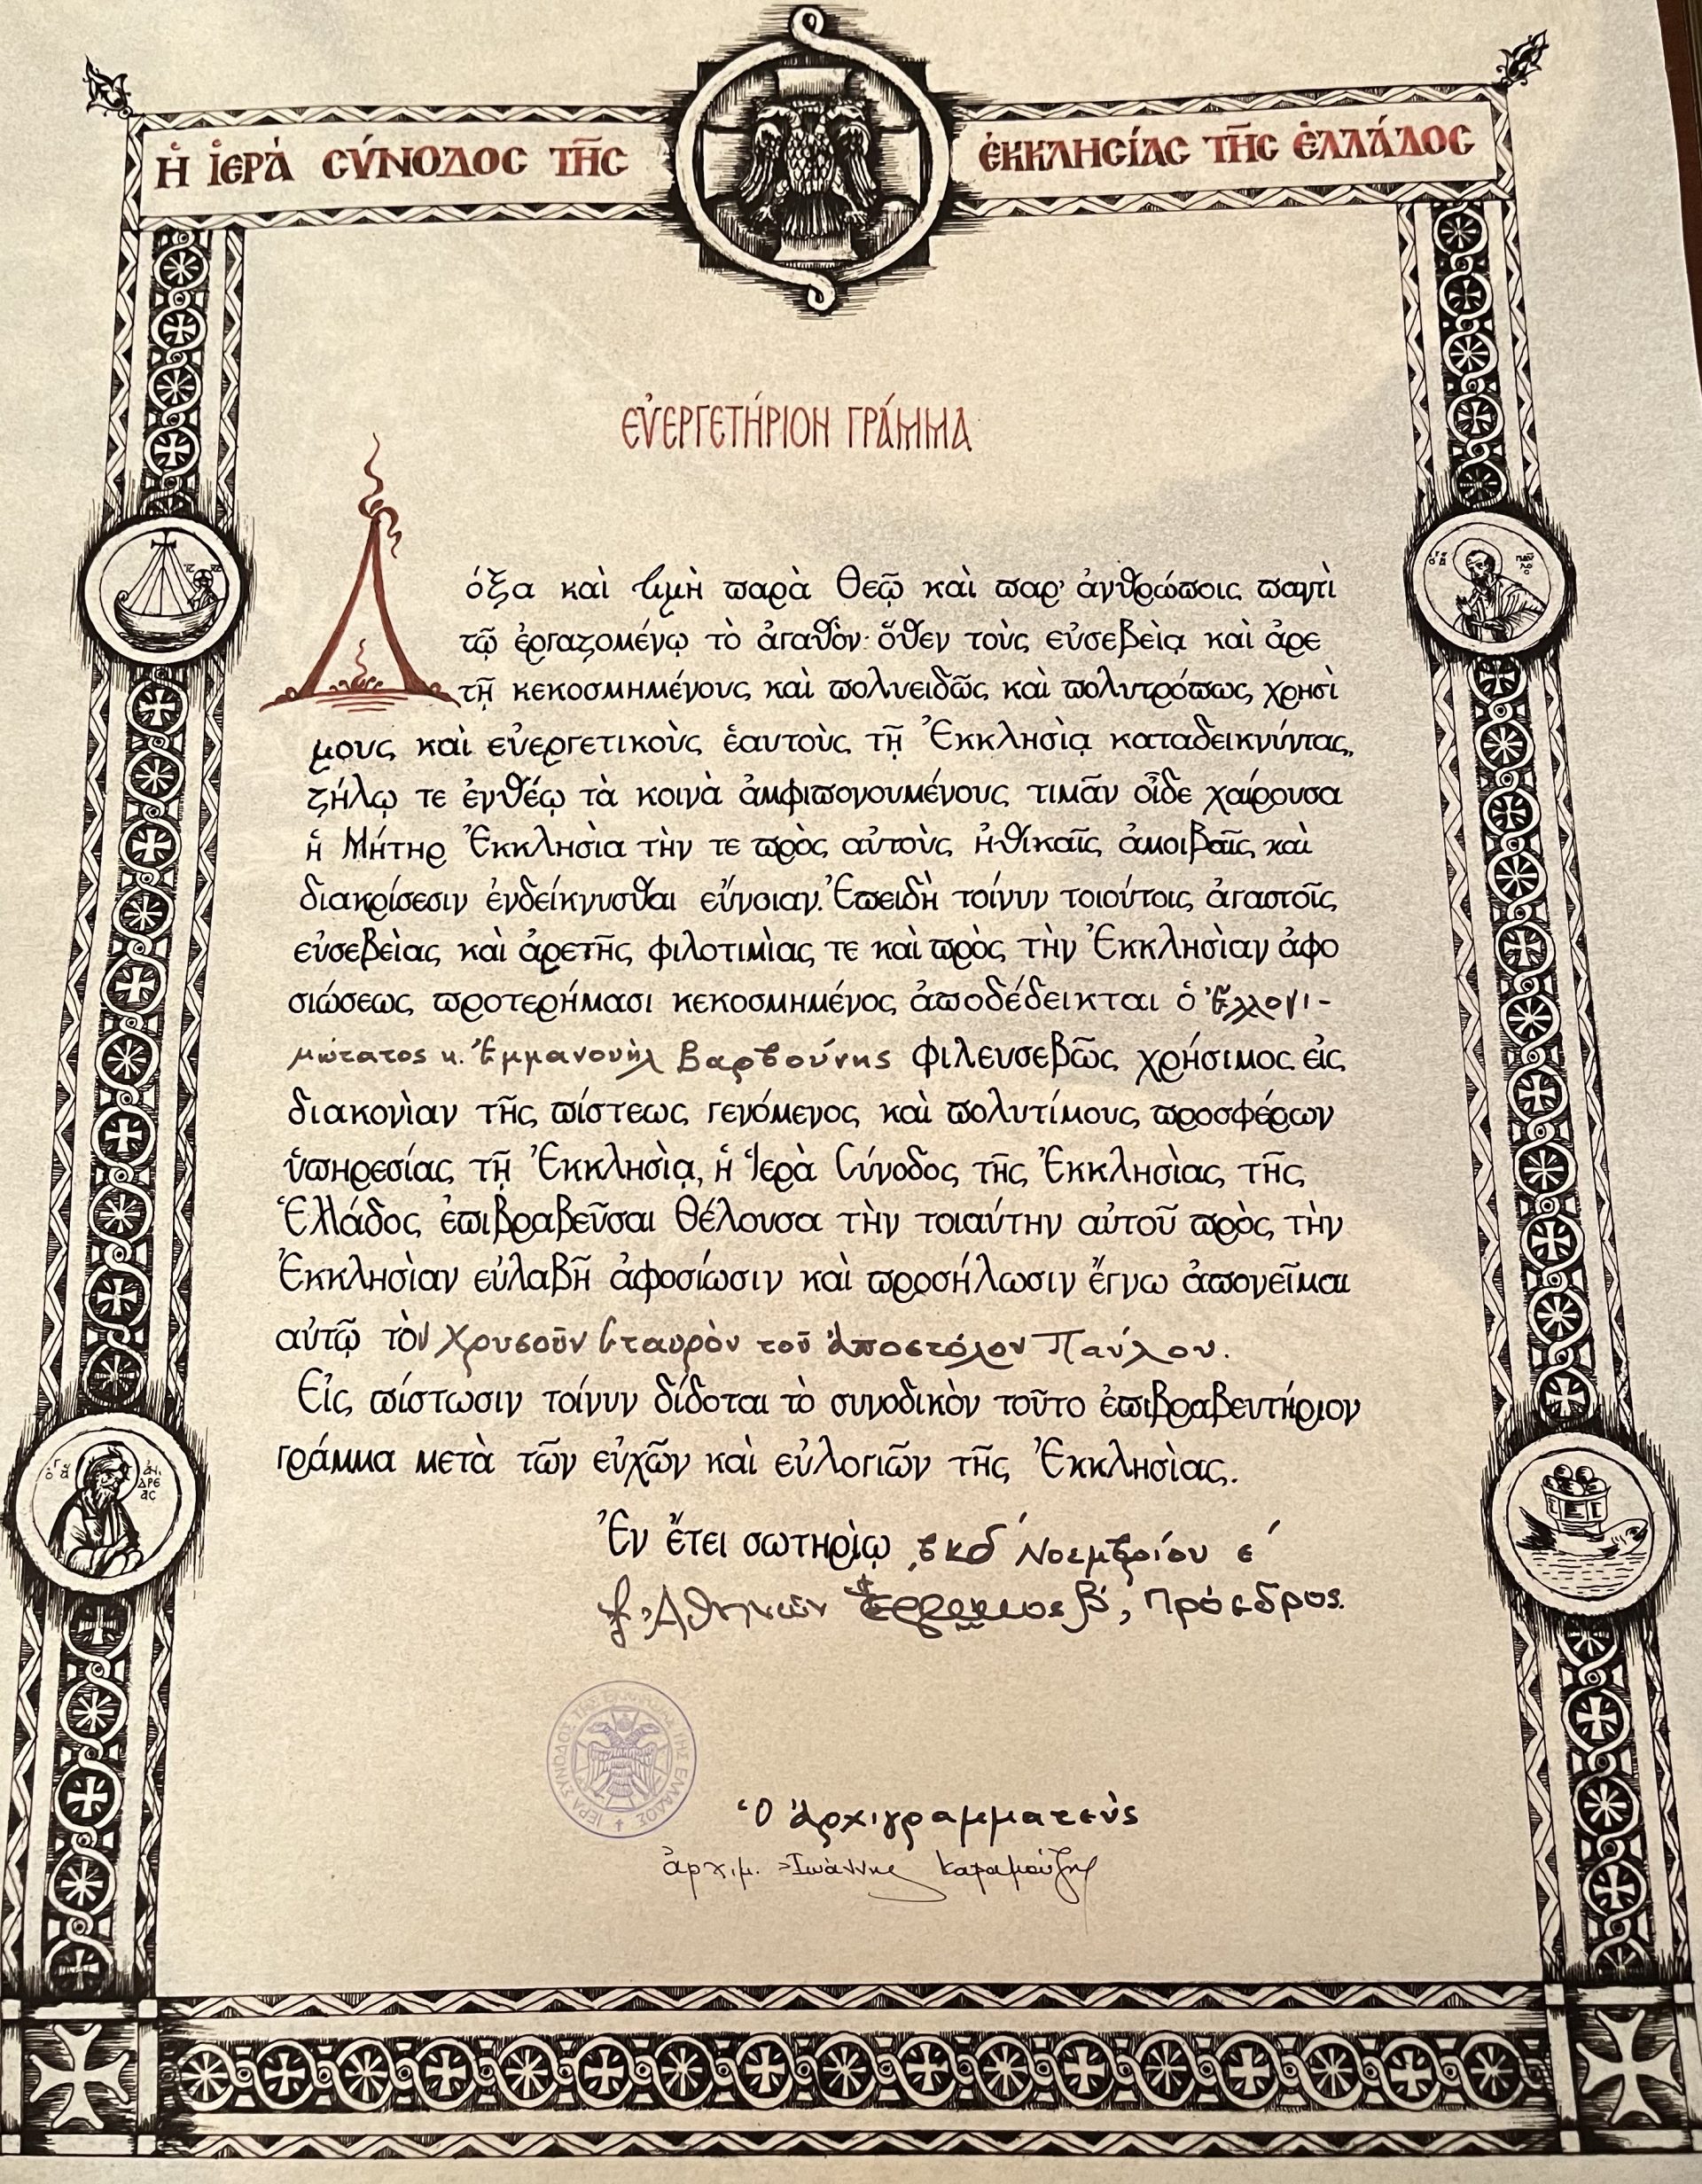 Ἡ ἹΕΡᾺ ΣΎΝΟΔΟΣ ΤΗ͂Σ ἘΚΚΛΗΣΊΑΣ ΤΗ͂Σ ἙΛΛΆΔΟΣ
ΕὐΕΡΓΕΤΉΡΙΟΝ ΓΡΆΜΜΑ
Δόξα καὶ τιμὴ παρὰ Θεῷ καὶ παρ' ἀνθρώποις παντὶ
τῷ ἐργαζομένῳ τὸ ἀγαθὸν· ὅθεν τοὺς εὐσεβείᾳ καὶ ἀρε
τῇ κεκοσμημένους καὶ πολυειδῶς καὶ πολυτρόπως χρησί
μους καὶ εὐεργετικοὺς ἑαυτοὺς τῇ Ἐκκλησίᾳ καταδεικνύντας,
ζήλῳ τε ἐνθέῳ τὰ κοινὰ ἀμφιπονουμένους τιμᾶν οἶδε χαίρουσα
ἡ Μήτηρ Ἐκκλησία τὴν τε πρὸς αὐτοὺς ἠθικαῖς ἀμοιβαῖς καὶ
διακρίσεσιν ἐνδείκνυσθαι εὔνοιαν. Ἐπειδὴ τοίνυν τοιούτοις ἀγαστοῖς
εὐσεβείας καὶ ἀρετῆς φιλοτιμίας τε καὶ πρὸς τὴν Ἐκκλησίαν ἀφο
σιώσεως προτερήμασι κεκοσμημένος ἀποδέδεικται ὁ Ἐλλογι-
μώτατος κ. Ἐμμανουὴλ Βαρβούνης φιλευσεβῶς χρήσιμος εἰς
διακονίαν τῆς πίστεως γενόμενος καὶ πολυτίμους προσφέρων
ὑπηρεσίας τῇ Ἐκκλησίᾳ, ἡ Ἱερὰ Σύνοδος τῆς Ἐκκλησίας τῆς
Ἑλλάδος ἐπιβραβεῦσαι θέλουσα τὴν τοιαύτην αὐτοῦ πρὸς τὴν
Ἐκκλησίαν εὐλαβῆ ἀφοσίωσιν καὶ προσήλωσιν ἔγνω ἀπονεῖμαι
αὐτῷ τὸν Χρυσοῦν Σταυρὸν τοῦ Ἀποστόλου Παύλου.
Εἰς πίστωσιν τοίνυν δίδοται τὸ συνοδικὸν τοῦτο ἐπιβραβευτήριον
γράμμα μετὰ τῶν εὐχῶν καὶ εὐλογιῶν τῆς Ἐκκλησίας.
Ἐν ἔτει σωτηρίῳ ͵βκδ΄ Νοεμβρίου ε΄
† Ἀθηνῶν Ἱερώνυμος Β΄, Πρόεδρος.
ΙΕΡΑ ΣΥΝΟΔΟΣ ΤΗΣ ΕΚΚΛΗΣΙΑΣ ΤΗΣ ΕΛΛΑΔΟΣ
Ὁ Ἀρχιγραμματεὺς
ἀρχιμ. Ἰωάννης Καραμούζης
ΙΣ ΧΣ
Ὁ ἍΓΙΟΣ ΠΑΥΛΟΣ
Ὁ ἍΓΙΟΣ ἈΝΔΡΕΑΣ